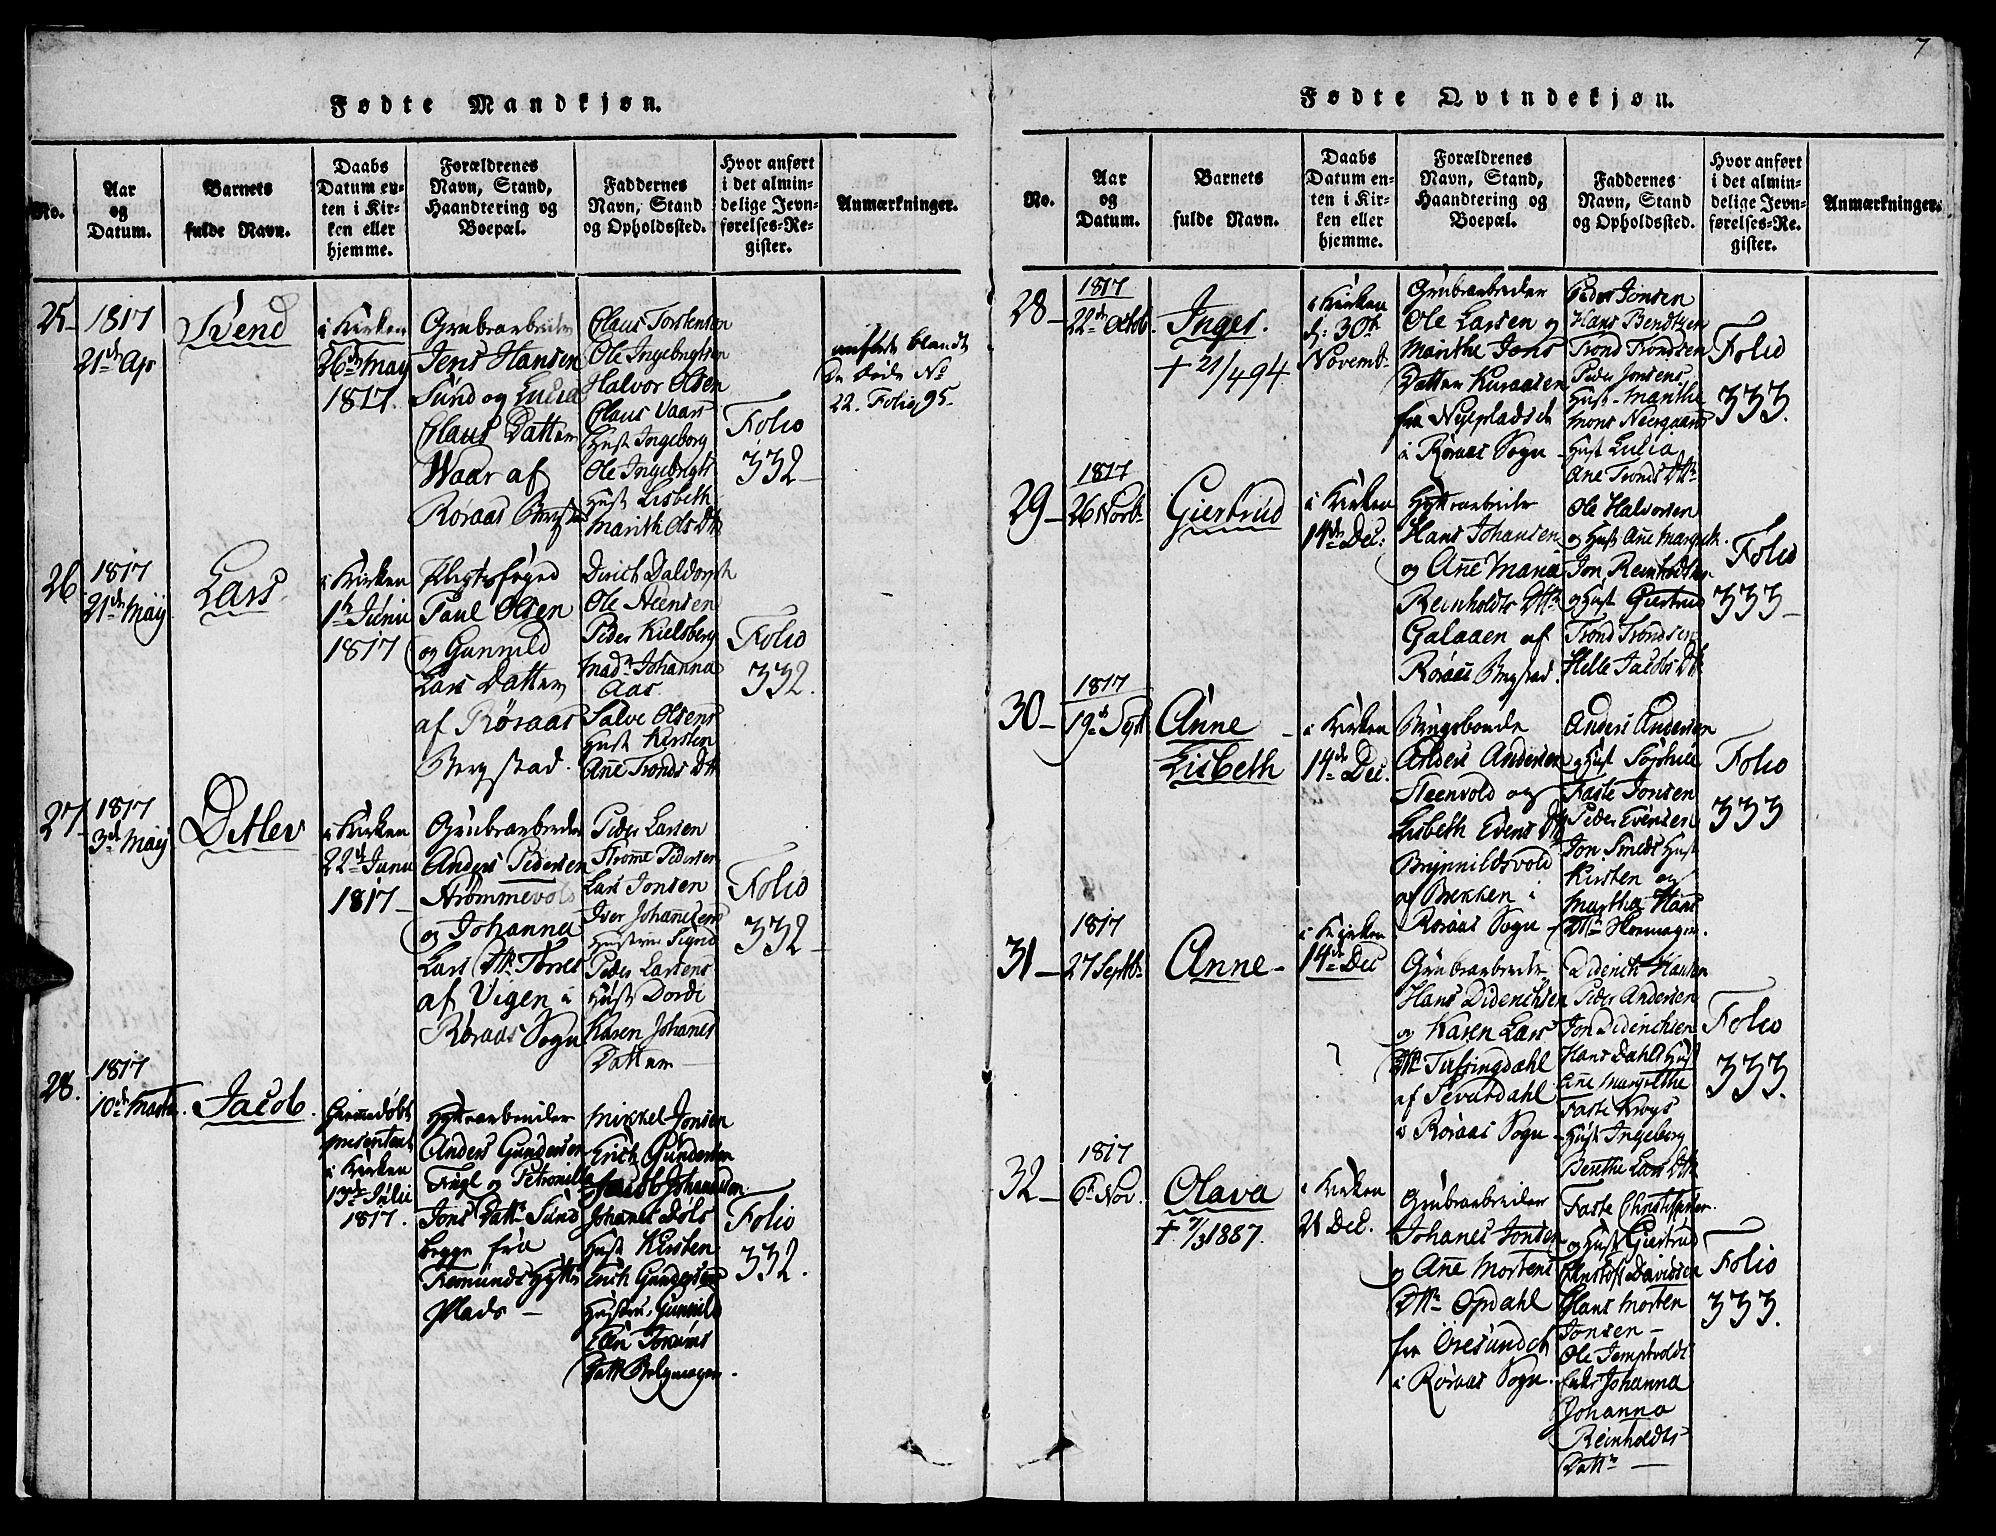 7
Fødte Mandkjøn.
No.
Aar
og
Datum.
Barnets
fulde Navn.
Daabs
Datum en-
ten i Kir-
ken eller
hjemme.
Forældrenes
Navn, Stand,
Haandtering og
Boepæl.
Faddernes
Navn, Stand
og Opholdssted.
Hvor anført
i det almin-
delige Jevn-
førelses-Re-
gister.
Anmærkninger.
25
1817
21de Apr
Svend
i Kirken
26de May
1817.
Grubearbeider
Jens Hansen
Sund og Lucia
Claus Datter
Waar af
Røraas Bergstad
Claus Torstensen
Ole Ingebrigtsen
Halvor Olsen
Claus Vaars
Hust Ingeborg
Ole Ingebrigts
Hust Lisbeth
Marith Ols Dtr
Folio
332
anførte blandt
De Døde No
22. Folio 95.
26
1817
21de May
Lars
i Kirken
1te Junii
1817
Poul Olsen
og Gunnild
Lars Datter
af Røraas
Bergstad.
Dirich Daldorph
Ole Steensen
Peder Kielsberg
Madm Johanna
Aas
Salve Olsens
Hust Kirsten
Anne Tronds Dtr
Folio
332.
27
1817
3de May
Detlev
i Kirken
22de Junii
1817
Grubearbeider
Anders Pedersen
Strømmevold
og Johanna
Lars Dtr Torres
af Vigen i
Røraas Sogn
Peder Larsen
Strømme Pedersen
Lars Jonsen
Iver Johannesens
Hustrue Sigrid
Peder Larsens
Hust Dordi
Karen Johanes
Datter
Folio
332
28.
1817
10de Martii.
Jacob.
præsenteret
i Kirken
13de Julii
1817.
Hytteearbeider
Anders Gundersen
Fugl og Petronille
Jons Datter Sund
begge fra
Femunds Hytte
Plads
Mikkel Jonsen
Erich Gundersen
Jacob Johannesen
Johanes Dols
Hust Kirsten
Erich Gundersens
Hustrue Gunnild
Elen Jorums
Datt Belgmager.
Folio
332.
Fødte Qvindekjøn.
No.
Aar
og
Datum.
Barnets
fulde Navn.
Daabs
Datum en-
ten i Kir-
ken eller
hjemme.
Forældrenes
Navn, Stand,
Haandtering og
Boepæl.
Faddernes
Navn, Stand
og Opholdssted.
Hvor anført
i det almin-
delige Jevn-
førelses-Re-
gister.
Anmærkninger.
28
1817
22de Octob.
Inger.
+ 21/4 94.
i Kirken
d: 30te
Novemb.
Grubearbeider
Ole Larsen og
Marithe Jons
Datter Kuraasen
fra Nyepladsen
i Røraas Sogn
Peder Jonsen
Hans Bendtzen
Trond Trondsen
Peder Jonsens
Hust Marithe
Mons Neergaards
Hust Lucia
Ane Tronds Dtr
Folio
333.
29
1817
26 Novb
Giertrud
i Kirken
14de Dec:
Hytteearbeider
Hans Johansen
og Anne Maria
Reinholdts Dtr
Galaaen af
Røraas Bergstad.
Ole Halvorsen
og Hust Ane Margreth.
Jon Reinholdtsen
og Hust Giertrud
Trond Trondsen
Helle Jacobs Dtr
Folio
333
30
1817
19de Sept
Anne
Lisbeth
i Kirken
14de Dec.
Brugsbonde
Anders Andersen
Steenvold og
Lisbeth Evens Dtr
Brynnildsvold
af Brekken i
Røraas Sogn
Anders Andersen
og Hust Sophie
Faste Jonsen
Peder Evensen
Jon Smeds Hust
Kirsten og
Martha Hans
Dtr Hormager.
Folio
333
31
1817
27 Septb
Anne
i Kirken
14de Dec
Grubearbeider
Hans Diderichsen
og Karen Lars
Dtr Tufsingdahl
af Sevatdahl
i Røraas Sogn
Diderich Hansen
Peder Andersen
Jon Diderichsen
Hans Dahls Hust
Ane Margrethe
Faste Krogs
Hust Ingeborg
Berethe Lars Dtr
Folio
333.
32
1817
6te Nov.
Olava
+ 7/3 1887.
i Kirken
21 Dec.
Grubearbeider
Johanes Jonsen
og Anne Mortens
Dtr Opdahl
fra Øresundet
i Røraas Sogn.
Faste Christophersen.
og Hust Giertrud
Christof Davidsen
Hans Morten
Jonsen
Ole Tempevolds
Enke Johanna
Johanna
Reinholdts
Datter
Folio
333.